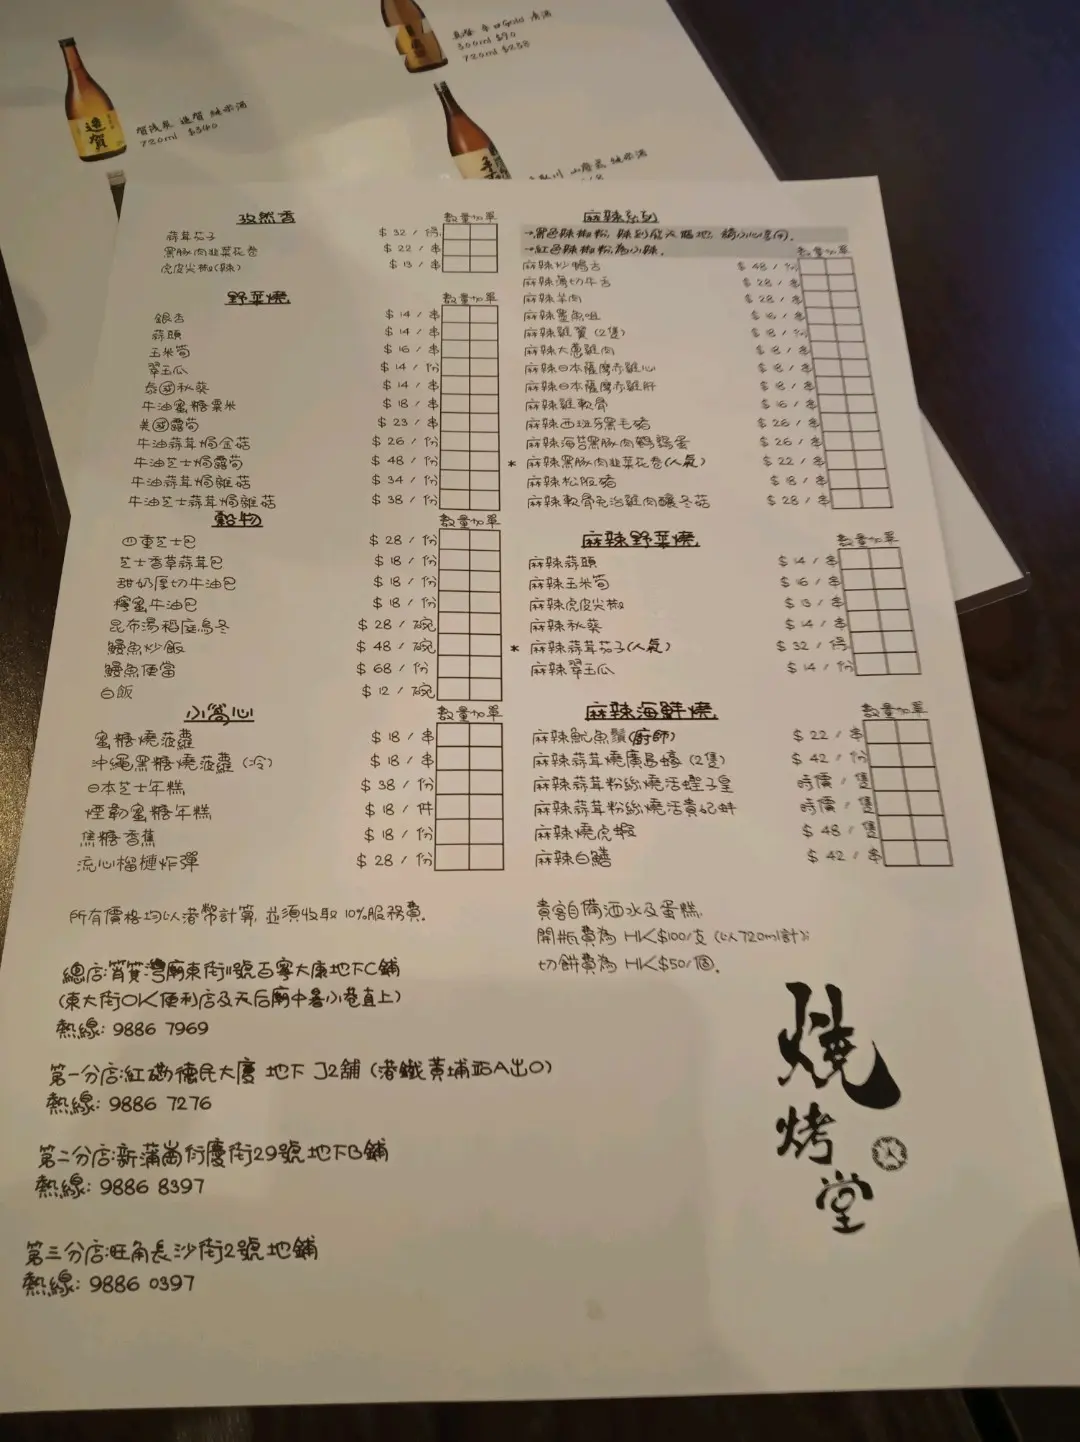 真澄 辛口Gold 清酒
300ml $90
720ml $258
賀茂泉 造賀 純米酒
720ml $340
造賀
山廃 純米酒
孜然香 數量 加單
蒜茸茄子 $32 / 得
黑豚肉韭菜花卷 $22 / 串
虎皮尖椒(辣) $13 / 串
野菜燒 數量 加單
銀杏 $14 / 串
蒜頭 $14 / 串
玉米筍 $16 / 串
翠玉瓜 $14 / 份
泰國秋葵 $14 / 串
牛油蜜糖粟米 $18 / 串
美國露筍 $23 / 串
牛油蒜茸焗金菇 $26 / 份
牛油芝士焗露筍 $48 / 份
牛油蒜茸焗雜菇 $34 / 份
牛油芝士蒜茸焗雜菇 $38 / 份
穀物 數量 加單
四重芝士包 $28 / 份
芝士香草蒜茸包 $18 / 份
甜奶厚切牛油包 $18 / 份
檸蜜牛油包 $18 / 份
昆布湯稻庭烏冬 $28 / 碗
鰻魚炒飯 $48 / 碗
鰻魚便當 $68 / 份
白飯 $12 / 碗
小窩心 數量 加單
蜜糖燒菠蘿 $18 / 串
沖繩黑糖燒菠蘿 (冷) $18 / 串
日本芝士年糕 $38 / 份
煙韌蜜糖年糕 $18 / 件
焦糖香蕉 $18 / 份
流心榴槤炸彈 $28 / 份
麻辣系列
→黑色辣椒粉, 辣到飛天遁地, 請小心享用.
→紅色辣椒粉為小辣.
數量 加單
麻辣炒鴨舌 $48 / 份
麻辣薄切牛舌 $28 / 串
麻辣羊肉 $28 / 串
麻辣墨魚咀 $16 / 串
麻辣雞翼 (2隻) $18 / 份
麻辣大蔥雞肉 $18 / 串
麻辣日本薩摩赤雞心 $18 / 串
麻辣日本薩摩赤雞肝 $18 / 串
麻辣雞軟骨 $16 / 串
麻辣西班牙黑毛豬 $26 / 串
麻辣海苔黑豚肉鵪鶉蛋 $26 / 串
* 麻辣黑豚肉韭菜花卷(人氣) $22 / 串
麻辣松阪豬 $18 / 串
麻辣軟骨免治雞肉釀冬菇 $28 / 串
麻辣野菜燒 數量 加單
麻辣蒜頭 $14 / 串
麻辣玉米筍 $16 / 串
麻辣虎皮尖椒 $13 / 串
麻辣秋葵 $14 / 串
* 麻辣蒜茸茄子(人氣) $32 / 得
麻辣翠玉瓜 $14 / 份
麻辣海鮮燒 數量 加單
麻辣魷魚鬚(廚師) $22 / 串
麻辣蒜茸燒廣島蠔 (2隻) $42 / 份
麻辣蒜茸粉絲燒活蟶子皇 時價 / 隻
麻辣蒜茸粉絲燒活貴妃蚌 時價 / 隻
麻辣燒虎蝦 $48 / 隻
麻辣白鱔 $42 / 串
所有價格均以港幣計算, 並須收取 10%服務費.
貴客自備酒水及蛋糕,
開瓶費為 HK$100/支 (以720ml計);
切餅費為 HK$50/個.
總店:筲箕灣廟東街11號百寧大廈地下C舖
(東大街OK便利店及天后廟中暑小巷直上)
熱線: 9886 7969
第一分店:紅磡德民大廈 地下 J2舖 (港鐵黃埔站A出口)
熱線: 9886 7276
第二分店:新蒲崗衍慶街29號地下B舖
熱線: 9886 8397
第三分店:旺角長沙街2號地舖
熱線: 9886 0397
燒烤堂